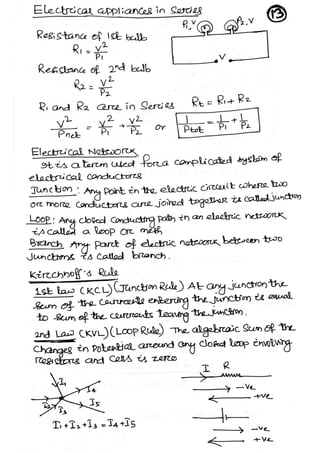 Electrical appliances in Series
13
P₁,V P₂,V
Resistance of 1st bulb
R₁ = V²/P₁
V
Resistance of 2nd bulb
R₂ = V²/P₂
R₁ and R₂ are in Series Rt = R₁ + R₂
V²/Pnet = V²/P₁ + V²/P₂ or 1/Ptot = 1/P₁ + 1/P₂
Electrical Network
It is a term used for a complicated system of
electrical conductors
Junction: Any point in the electric circuit where two
or more conductors are joined together is called junction
Loop: Any closed conducting path in an electric network
is called a loop or mesh
Branch Any part of electric network between two
Junctions is called branch.
Kirchhoff's Rule
1st law (KCL) (Junction Rule) At any junction the
sum of the currents entering the junction is equal
to sum of the currents leaving the junction.
2nd Law (KVL) (LOOP Rule) The algebraic sum of the
changes in potential around any closed loop involving
resistors and cells is zero
I R
I₁ I₄
-ve
+ve
I₂ I₃ I₅
I₁+I₂+I₃ = I₄+I₅
-ve
+ve